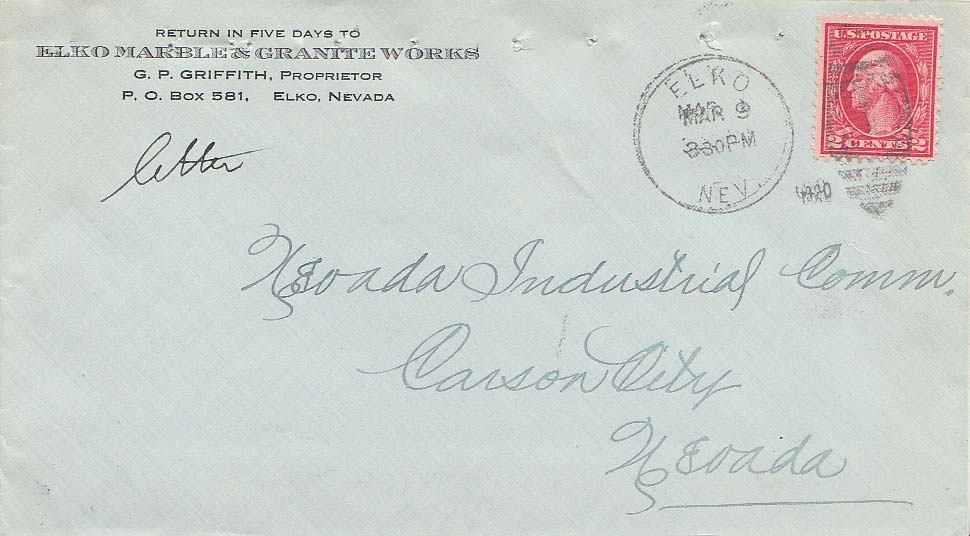 RETURN IN FIVE DAYS TO
ELKO MARBLE & GRANITE WORKS
G. P. GRIFFITH, PROPRIETOR
P. O. BOX 581, ELKO, NEVADA
letter
ELKO
MAR 9
330PM
NEV.
1920
U.S. POSTAGE
2 CENTS 2
Nevada Industrial Comm.
Carson City
Nevada